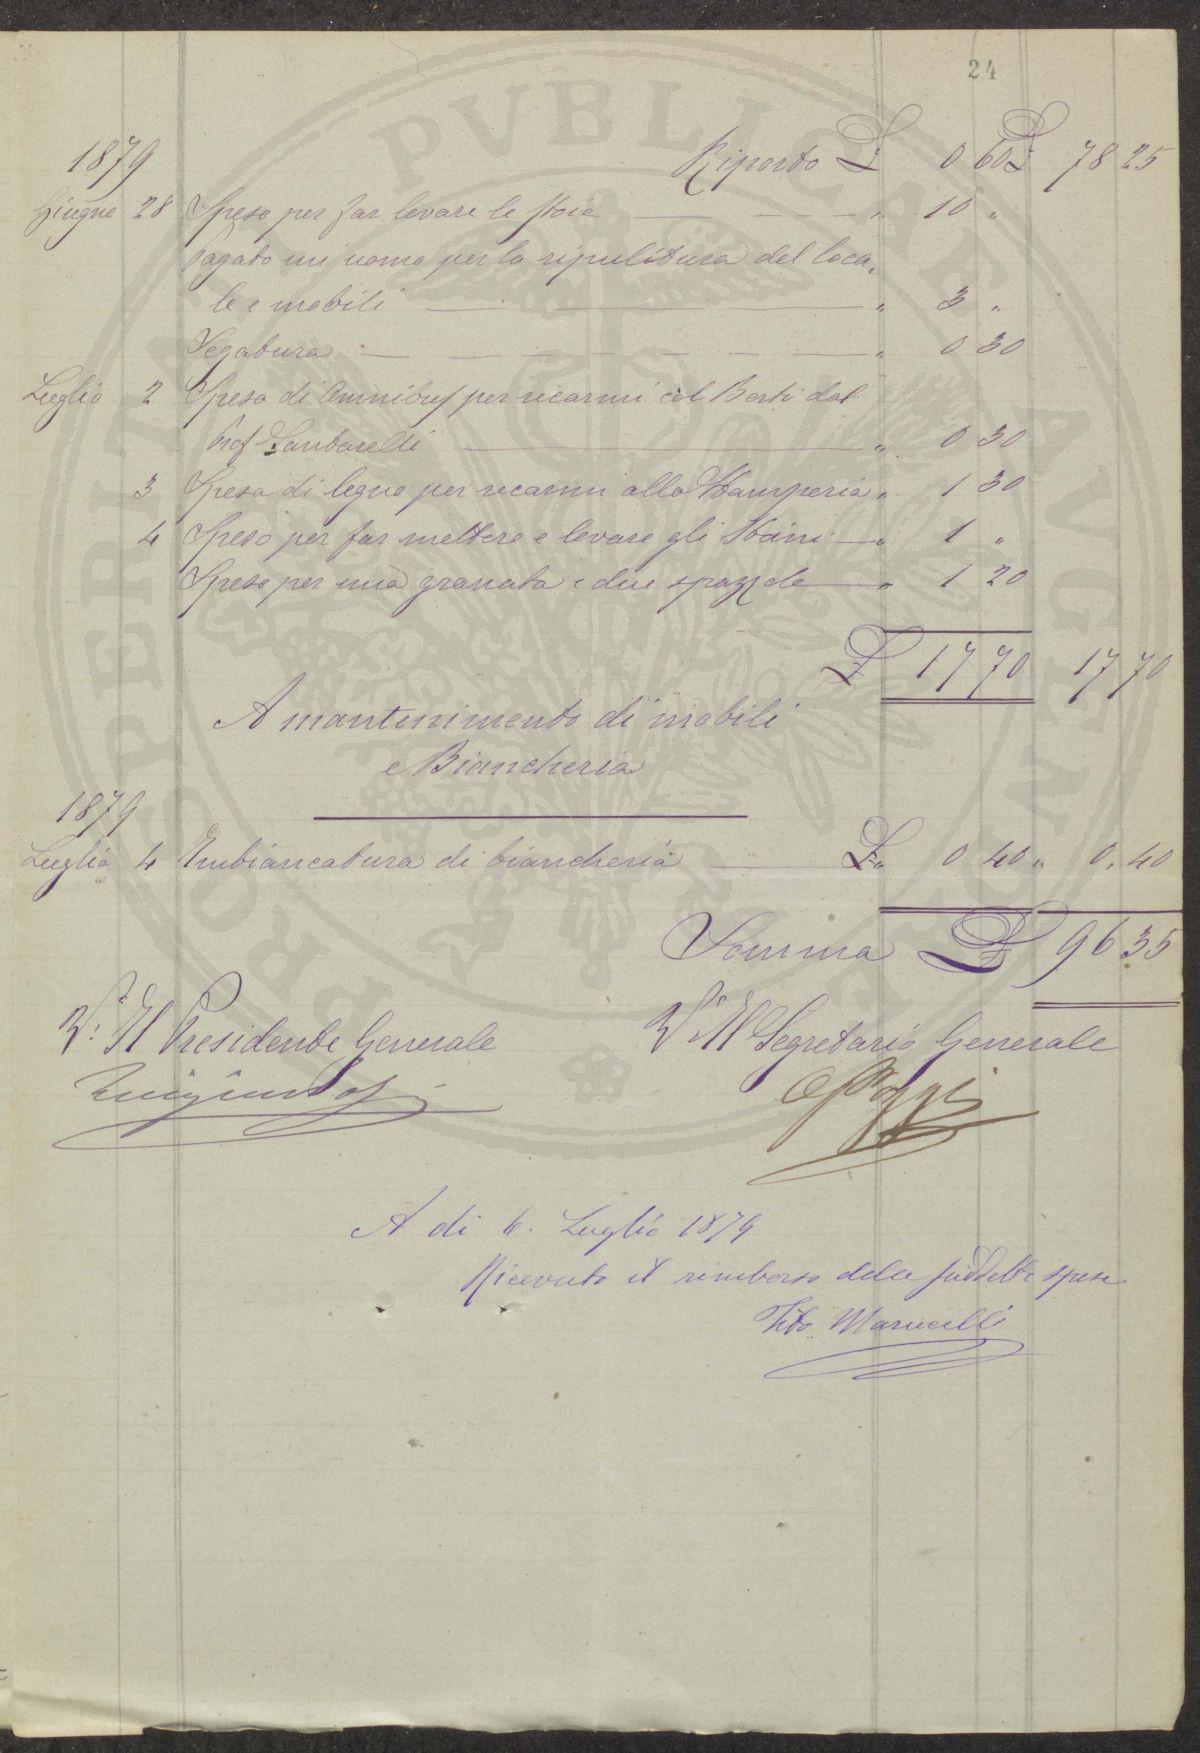 24
1879 Riporto L 0 60 L 78 25
Giugno 28 Spesa per far levare le stoie " 10 "
Pagato un uomo per la ripulitura del loca-
le e mobili " 3 "
Segatura " 0 30
Luglio 2 Spesa di Omnibus per recarmi col Berti dal
Prof Santarelli " 0 30
3 Spesa di legno per recarmi alla Stamperia " 1 30
4 Spesa per far mettere e levare gli " 1 "
Spesa per una granata e due spazzole " 1 20
L 17 70 17 70
A mantenimento di mobili
e Biancheria
1879
Luglio 4 Imbiancatura di biancheria L " 0 40 " 0,40
Somma L 96 35
V.° Il Presidente Generale
V° Il Segretario Generale
A di 6. Luglio 1879
Ricevuto il rimborso delle suddette spese
Tito Marucelli
PROSPERITATI PVBLICAE AVGENDAE